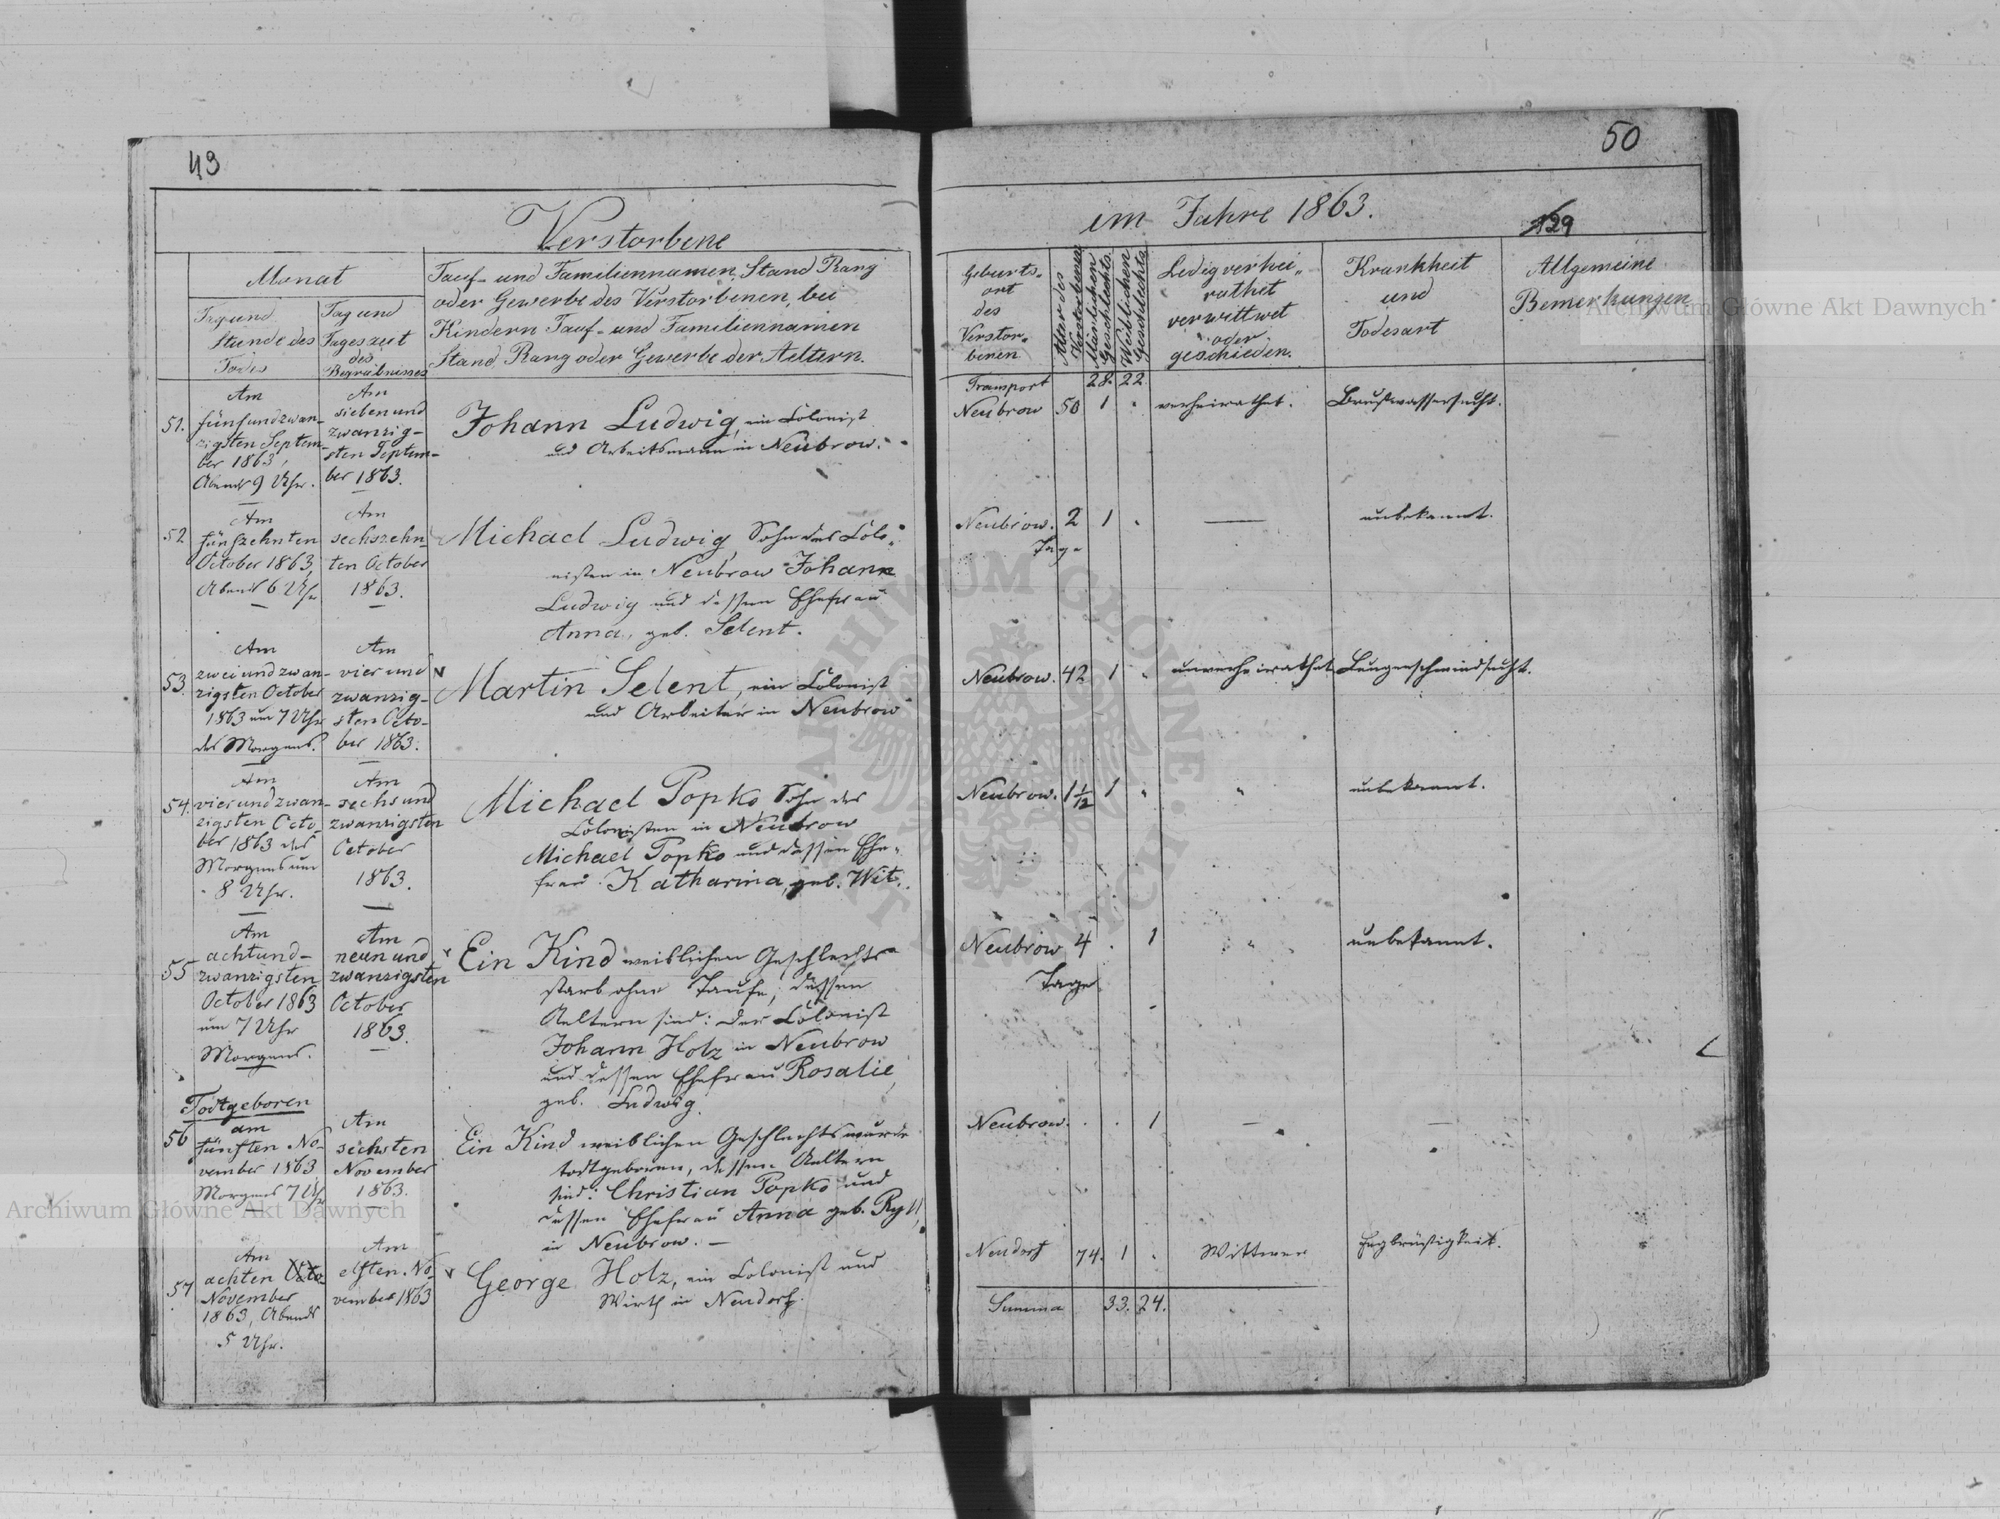 43
50
Verstorbene
im Jahre 1863.
129
Monat
Tag und
Stunde des
Todes
Tag und
Tageszeit
des
Begräbnisses
Tauf- und Familiennamen, Stand Rang
oder Gewerbe des Verstorbenen, bei
Kindern Tauf- und Familiennamen
Stand, Rang oder Gewerbe der Aeltern.
Geburts-
ort
des
Verstor-
benen
Alter des
Verstorbenen
Männlichen
Geschlechts.
Weiblichen
Geschlechts
Ledig verhei-
rathet
verwittwet
oder
geschieden.
Krankheit
und
Todesart
Allgemeine
Bemerkungen
Transport 28. 22.
51.
Am
fünfundzwan-
zigsten Septem-
ber 1863,
Abends 9 Uhr.
Am
sieben und
zwanzig-
sten Septem-
ber 1863.
Johann Ludwig, ein Colonist
und Arbeitsmann in Neubrow.
Neubrow 50 1 " verheirathet. Brustwassersucht.
52
Am
fünfzehnten
October 1863
Abends 6 Uhr
Am
sechszehn-
ten October
1863.
Michael Ludwig, Sohn des Colo-
nisten in Neubrow Johann
Ludwig und dessen Ehefrau
Anna, geb. Selent.
Neubrow. 2 1 "
Tage
unbekannt.
53.
Am
zwei und zwan-
zigsten October
1863 um 7 Uhr
des Morgens.
Am
vier und
zwanzig-
sten Octo-
ber 1863.
Martin Selent, ein Colonist
und Arbeiter in Neubrow
Neubrow. 42 1 " unverheirathet Lungenschwindsucht.
54.
Am
vier und zwan-
zigsten Octo-
ber 1863 des
Morgens um
8 Uhr.
Am
sechs und
zwanzigsten
October
1863.
Michael Popko, Sohn des
Colonisten in Neubrow
Michael Popko und dessen Ehe-
frau Katharina, geb. Wit.
Neubrow. 1 1/2 1 " " unbekannt.
55
Am
acht und-
zwanzigsten
October 1863
um 7 Uhr
Morgens.
Am
neun und
zwanzigsten
October
1863.
Ein Kind weiblichen Geschlechts
starb ohne Taufe, dessen
Aeltern sind: der Colonist
Johann Holz in Neubrow
und dessen Ehefrau Rosalie,
geb. Ludwig.
Neubrow 4 . 1 " unbekannt.
Tage
Todtgeboren
56
am
fünften No-
vember 1863
Morgens 7 Uhr
Am
sechsten
November
1863.
Ein Kind weiblichen Geschlechts wurde
todtgeboren, dessen Aeltern
sind: Christian Popko und
dessen Ehefrau Anna geb. Ryll,
in Neubrow. —
Neubrow. . . 1 — —
57
Am
achten Octo-
November
1863, Abends
5 Uhr.
Am
elften No-
vember 1863
George Holz, ein Colonist und
Wirth in Neudorf.
Neudorf 74. 1 . Wittwer Engbrüstigkeit.
Summa 33. 24.
Archiwum Główne Akt Dawnych
Archiwum Główne Akt Dawnych
ARCHIWUM GŁÓWNE AKT DAWNYCH